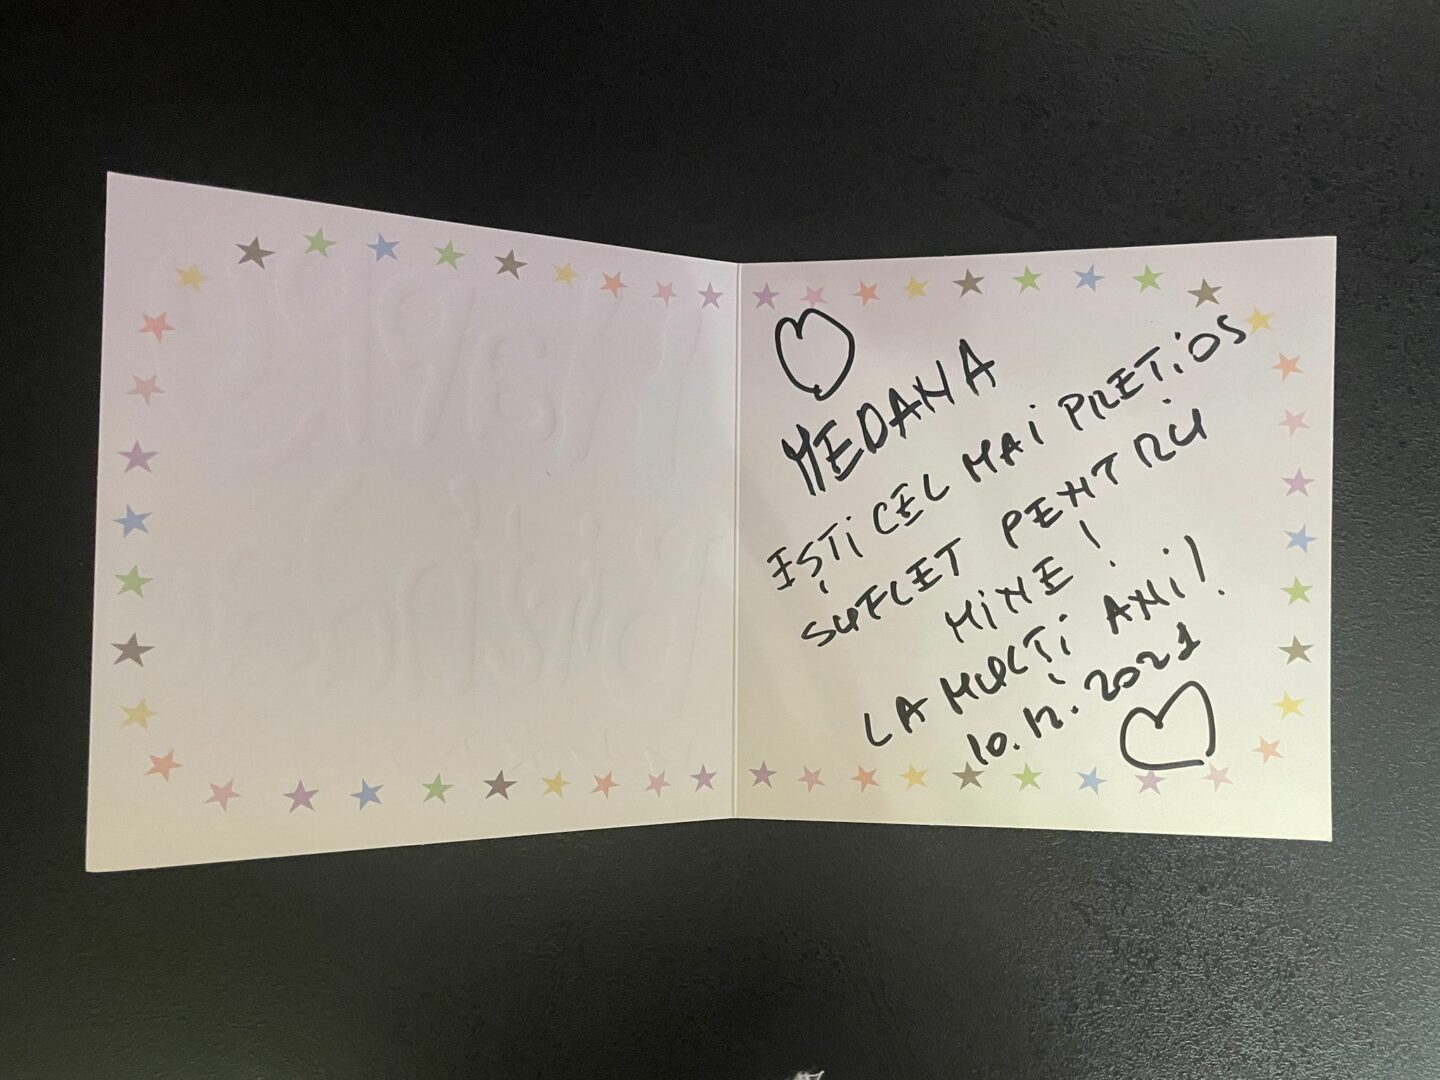 MEDANA
EȘTI CEL MAI PRETIOS
SUFLET PENTRU
MINE!
LA MULȚI ANI!
10.12.2021